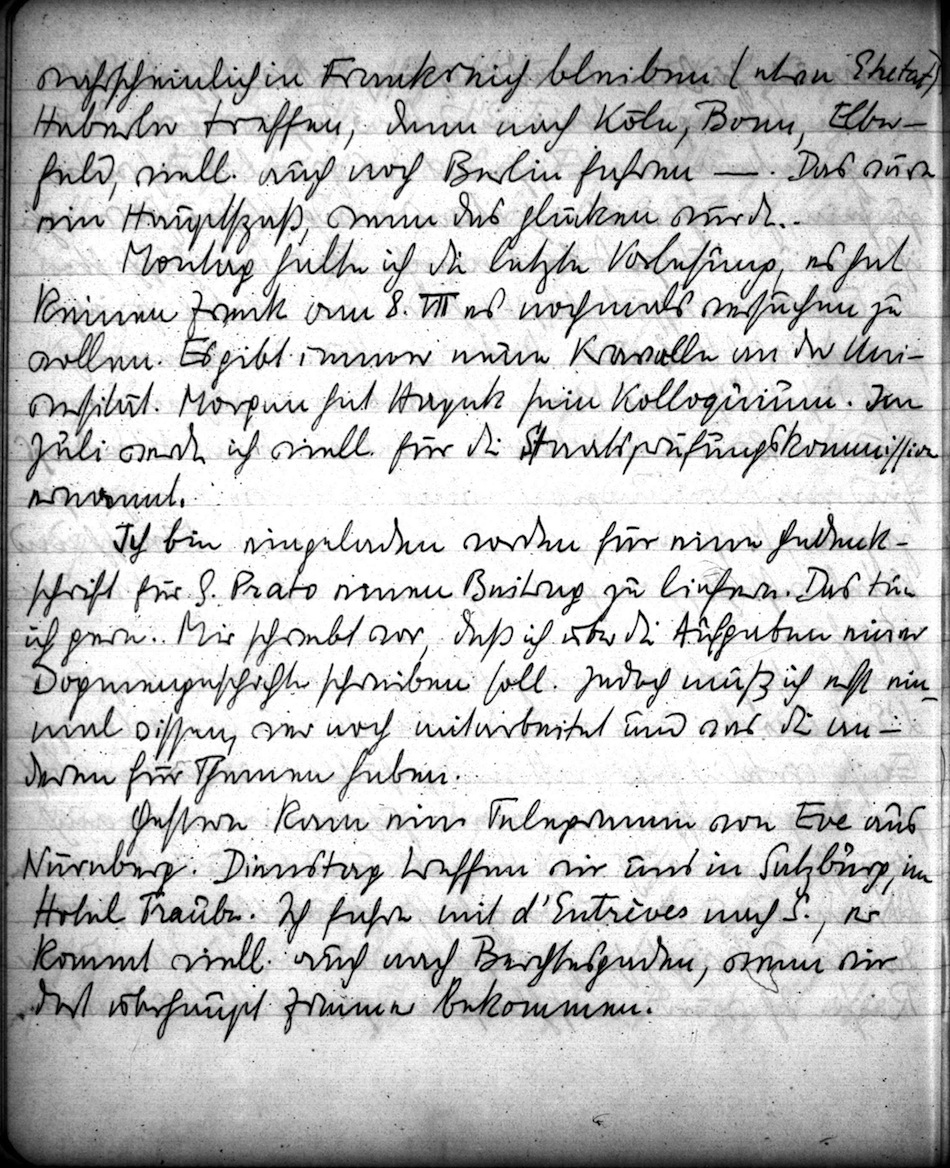 wahrscheinlich in Frankreich bleiben (etwa Etretat)
Haberler treffen, dann nach Köln, Bonn, Elber-
feld, viell. auch noch Berlin fahren —. Das wäre
ein Hauptspaß, wenn das glücken würde..
Montag halte ich die letzte Vorlesung, es hat
keinen Zweck am 8. VII es nochmals versuchen zu
wollen. Es gibt immer neue Krawalle an der Uni-
versität. Morgen hat Hayek sein Kolloquium. Im
Juli werde ich viell. für die Staatsprüfungskommission
ernannt.
Ich bin eingeladen worden für eine Gedenk-
schrift für G. Prato einen Beitrag zu liefern. Das tue
ich gern.. Mir schwebt vor, daß ich über die Aufgaben einer
Dogmengeschichte schreiben soll. Jedoch muß ich erst ein-
mal wissen, wer noch mitarbeitet und was die an-
deren für Themen haben.
Gestern kam ein Telegramm von Eve aus
Nürnberg. Dienstag treffen wir uns in Salzburg, im
Hotel Traube. Ich fahre mit d'Entrèves nach S., er
kommt viell. auch nach Berchtesgaden, wenn wir
dort überhaupt Zimmer bekommen.